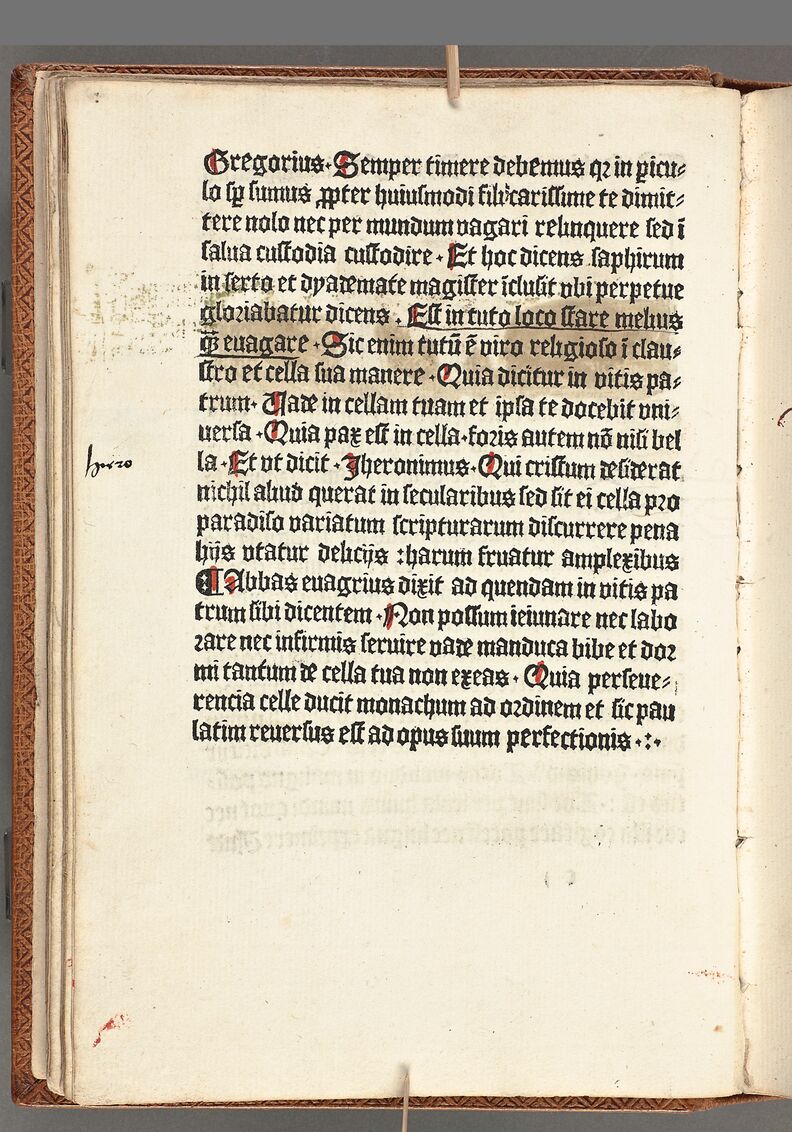 Gregorius. Semper timere debemus qꝛ in ꝑicu⸗
lo sꝑ sumus ꝓpter huiusmodi fili carissime te dimit⸗
tere nolo nec per mundum vagari relinquere sed ī
salua custodia custodire. Et hoc dicens saphirum
in serto et dyademate magister īclusit vbi perpetue
gloriabatur dicens. Est in tuto loco stare melius
qͣꝫ euagare. Sic enim tutū ē viro religioso ī clau⸗
stro et cella sua manere. Quia dicitur in vitis pa⸗
trum. Vade in cellam tuam et ipsa te docebit vni⸗
uersa. Quia pax est in cella. foris autem nō nisi bel
la. Et vt dicit. Jheronimus. Qui cristum desiderat
nichil aliud querat in secularibus sed sit ei cella pro
paradiso variatum scripturarum discurrere pena
hijs vtatur delicijs : harum fruatur amplexibus
¶ Abbas euagrius dixit ad quendam in vitis pa
trum sibi dicentem. Non possum ieiunare nec labo
rare nec infirmis seruire vade manduca bibe et dor
mi tantum de cella tua non exeas. Quia perseue⸗
rencia celle ducit monachum ad ordinem et sic pau
latim reuersus est ad opus suum perfectionis .:.